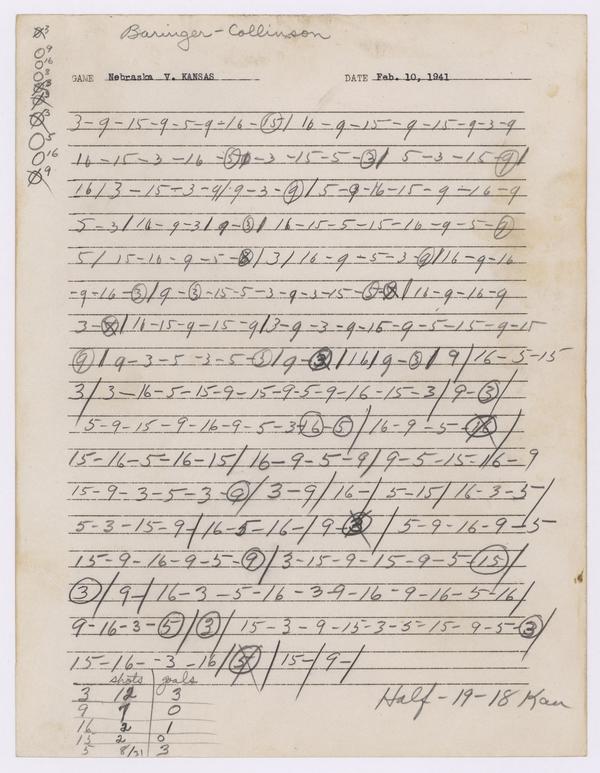 Baringer-Collinson
3
9
16
3
3
3
3
5
16
9
GAME Nebraska V. KANSAS DATE Feb. 10, 1941
3-9-15-9-5-9-16-15/ 16-9-15-9-15-9-3-9
16-15-3-16-5-3-15-5-3/ 5-3-15-9/
16/3-15-3-9/9-3-9/5-9-16-15-9-16-9
5-3/16-9-3/9-3/ 16-15-5-15-16-9-5-9
5/ 15-16-9-5-8/3/16-9-5-3-9/16-9-16
-9-16-3/9-3-15-5-3-9-3-15-5-8/16-9-16-9
3-8/16-15-9-15-9/3-9-3-9-16-9-5-15-9-15
9/9-3-5-3-5-3/9-3/16/9-3/9/16-5-15
3/3-16-5-15-9-15-9-5-9-16-15-3/9-3/
5-9-15-9-16-9-5-3-16-5/16-9-5-16/
15-16-5-16-15/16-9-5-9/9-5-15-16-9
15-9-3-5-3-9/3-9/16-/5-15/16-3-5/
5-3-15-9-/16-5-16-/9-3/5-9-16-9-5
15-9-16-9-5-9/3-15-9-15-9-5-15/
3/9-/16-3-5-16-3-9-16-9-16-5-16/
9-16-3-5/3/ 15-3-9-15-3-5-15-9-5-3/
15-16--3-16/5/15-/9-/
shots goals
3 12 3
9 7 0
16 2 1
15 2 0
5 8/31 3
Half-19-18 Kan